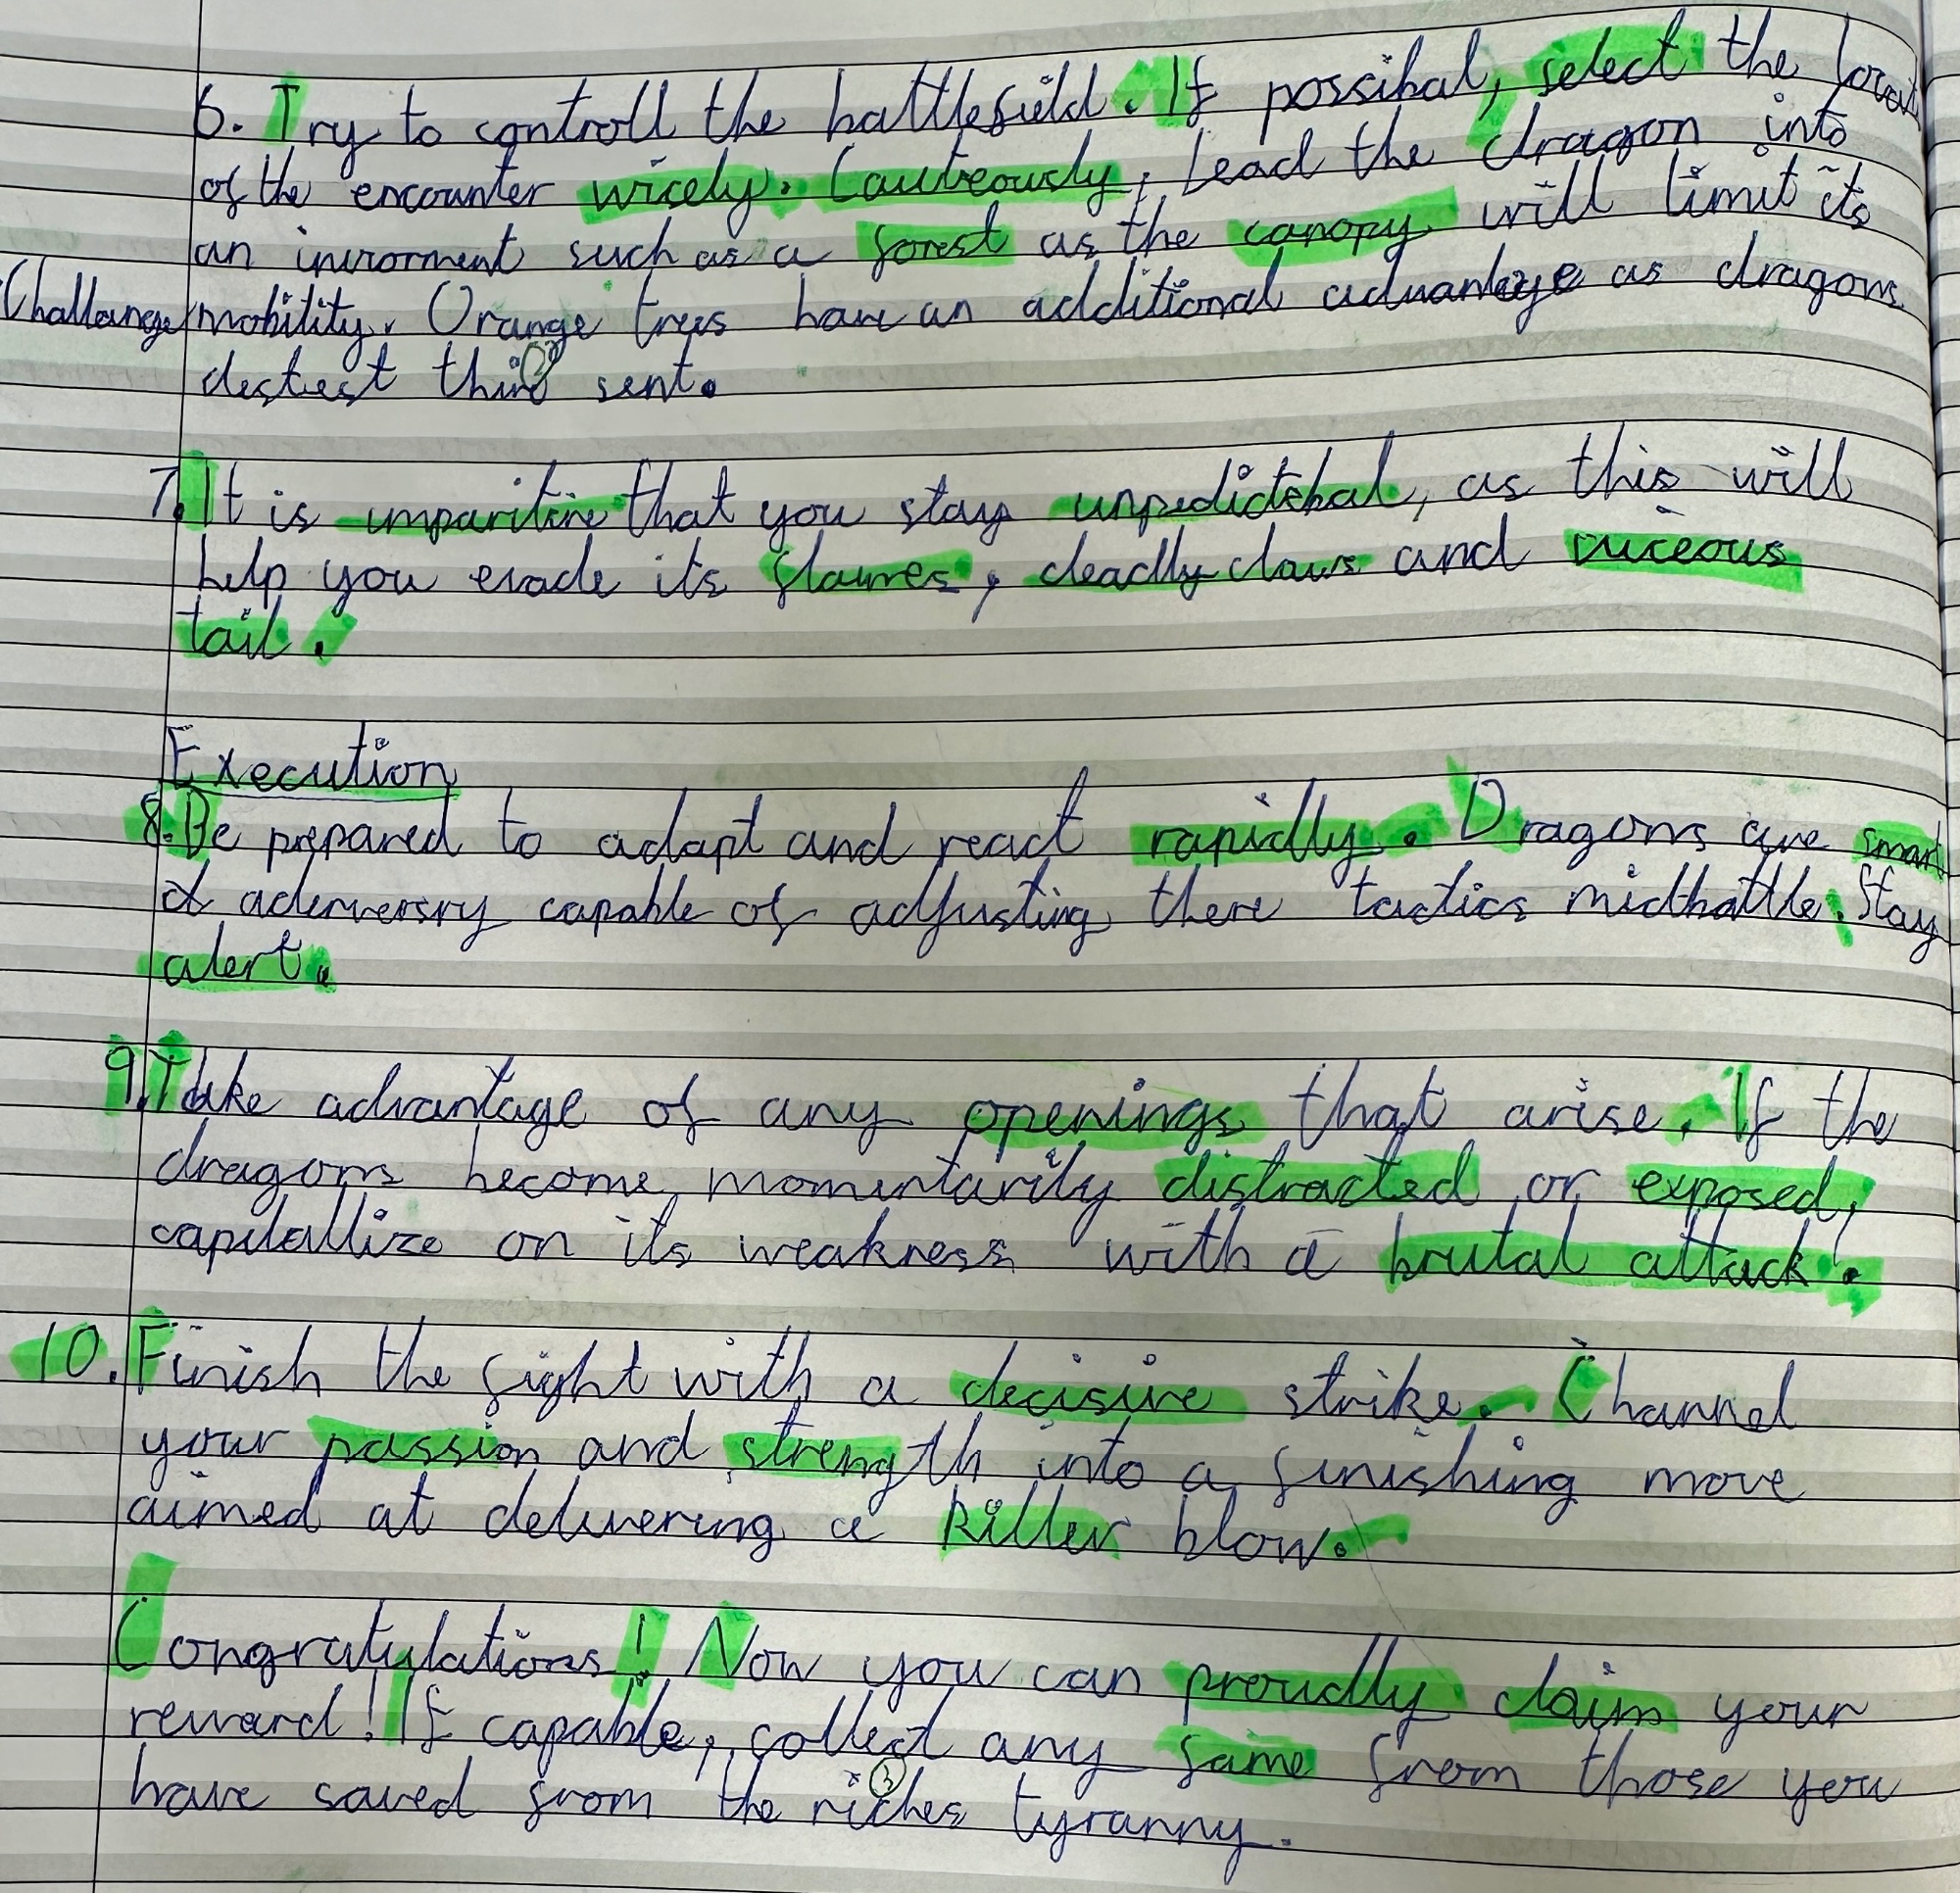 6. Try to controll the battlefeild. If possibal, select the
of the encounter wicely. Cauteously, Lead the dragon into
an inviroment such as a forest as the canopy will limit its
Challange mobility. Orange trees have an additional advantage as dragons
destest sent.
7. It is imparitive that you stay unpedictebal, as this will
help you evade its flames, deadly claws and viceous
tail.
Execution
8. Be prepared to adapt and react rapidly. Dragons are smart
aderversry capable of adjusting there tactics midbattle. Stay
alert.
9. Take advantage of any openings that arise. If the
dragons become momintarily distracted or exposed,
capitallize on its weakness with a brutal attack!
10. Finish the fight with a decisive strike. Channel
your passion and strength into a finishing move
aimed at delivering a killer blow.
Congratulations! Now you can proudly claim your
reward! If capable, collect any fame from those you
have saved from the riches tyranny.